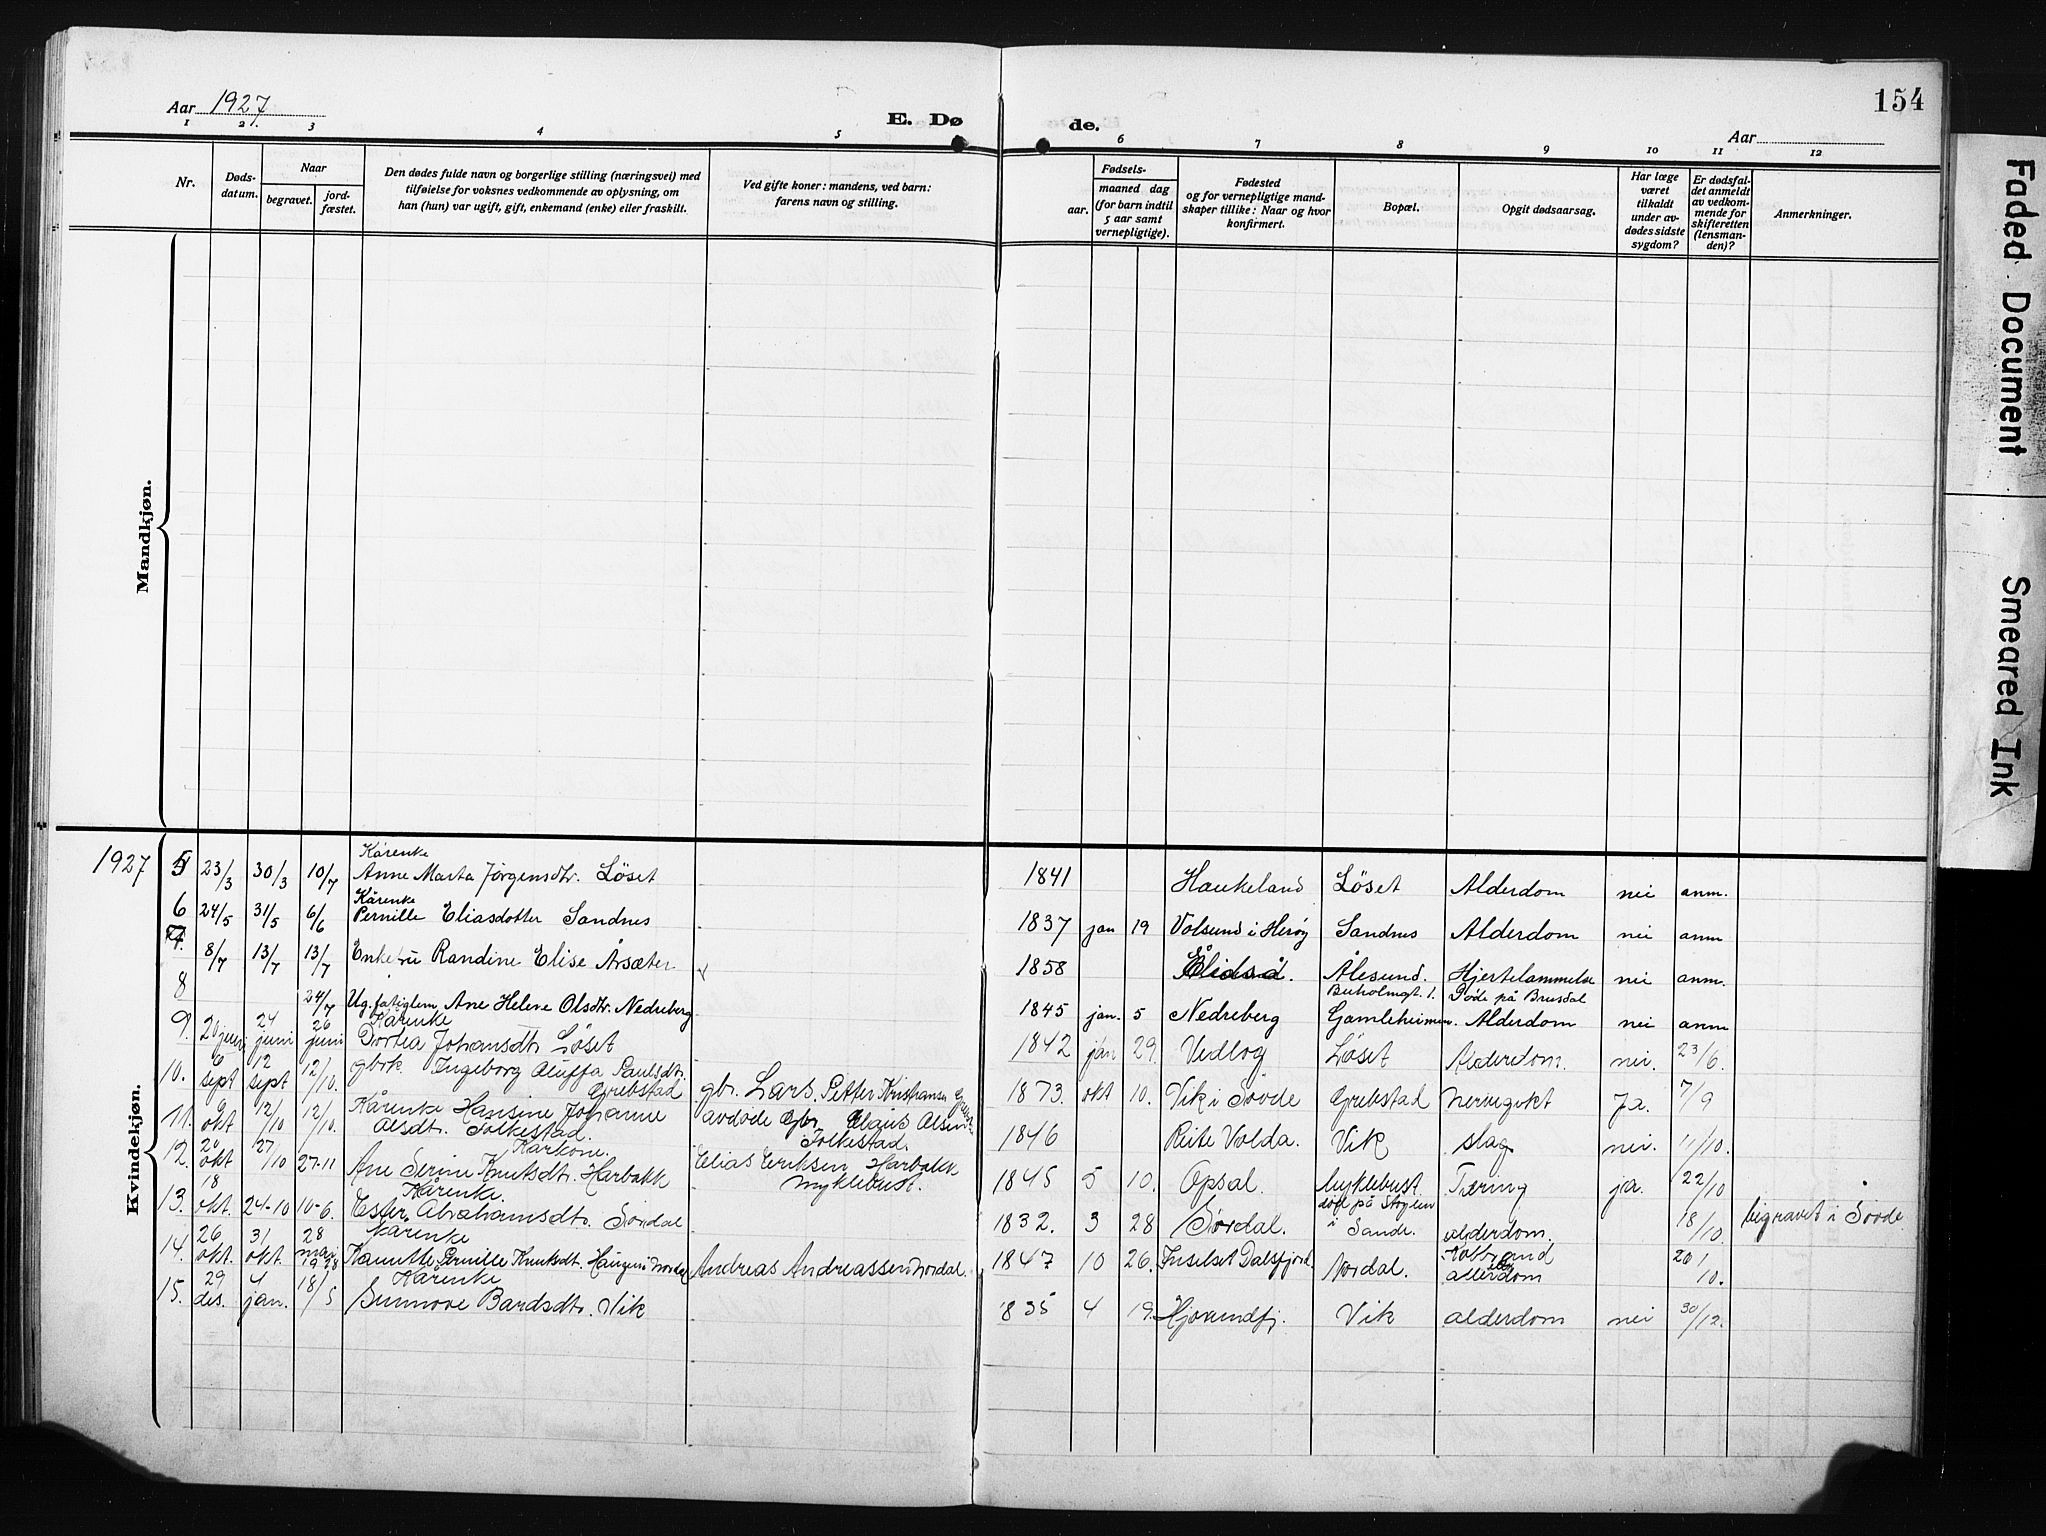 154
Aar 1927
E. Døde.
Aar
1 2. 3 4 5 6 7 8 9 10 11 12
Nr.
Døds-
datum.
Naar
begravet.
jord-
fæstet.
Den dødes fulde navn og borgerlige stilling (næringsvei) med
tilføielse for voksnes vedkommende av oplysning, om
han (hun) var ugift, gift, enkemand (enke) eller fraskilt.
Ved gifte koner: mandens, ved barn:
farens navn og stilling.
Fødsels-
aar.
maaned dag
(for barn indtil
5 aar samt
vernepligtige).
Fødested
og for vernepligtige mand-
skaper tillike: Naar og hvor
konfirmert.
Bopæl.
Opgit dødsaarsag.
Har læge
været
tilkaldt
under av-
dødes sidste
sygdom?
Er dødsfal-
det anmeldt
av vedkom-
mende for
skifteretten
(lensman-
den)?
Anmerkninger.
Mandkjøn.
Kvindekjøn.
Kårenke
1927 5 23/3 30/3 10/7 Anne Marta Jørgensdtr. Løset 1841 Haukeland Løset Alderdom nei anm.
Kårenke
6 24/5 31/5 6/6 Pernille Eliasdotter Sandnes 1837 jan 19 Volsund i Herøy Sandnes Alderdom nei anm
7. 8/7 13/7 13/7 Enkefru Randine Elise Årsæter 1858 Ålesund. Hjertelammelse nei anm.
Buholmgt. 1. Døde på Brusdal
8 24/7 Ug. fatiglem Ane Helene Olsdtr. Nedreberg 1845 jan. 5 Nedreberg Gamleheimen. Alderdom nei anm
Kårenke
9. 20 juni 24 juni 26 juni Dortea Johansdtr Løset 1842 jan 29. Vedlog Løset Alderdom. nei. 23/6.
10. 6 sept 12 sept 12/10. gbrk. Ingeborg Oluffa Paulsdtr. Grebstad gbr. Lars Petter Kristiansen 1873. okt 10. Vik i Søvde Grebstad Ja. 7/9
11. 9 okt 12/10 12/10. Kårenke Hansine Johanne Olsdt. Folkestad. avdøde Gbr Claus Olsen Folkestad. 1846 Reite Volda. Vik slag nei. 11/10.
Karkone.
12. 20 okt 27/10 27-11 Ane Serine Knutsdt. Harbakk Elias Eriksen Harbakk Myklebust. 1845 5 10. Opsal. Myklebust Tæring ja. 22/10
Kårenke.
13. 18 okt. 24-10 10-6. Ester Abrahamsdt. Sørdal 1832. 3 28 Sørdal. i Sande. alderdom. 18/10. begravet i Søvde
Kårenke
14. 26 okt. 31 okt. 28 mai 1928 Pernille Knutsdt. Andreas Andreassen Nordal. 1847 10 26. Inselset Dalsfjord. Nordal. alderdom 20/10.
Kårenke
15. 29 des. 4 jan. 18/5 Sunnove Bardsdtr. Vik 1835 4 19. Hjørundfj. Vik alderdom nei 30/12.
Faded Document
Smeared Ink